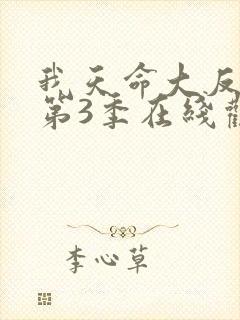 我天命大反
第3季在线看
李心草